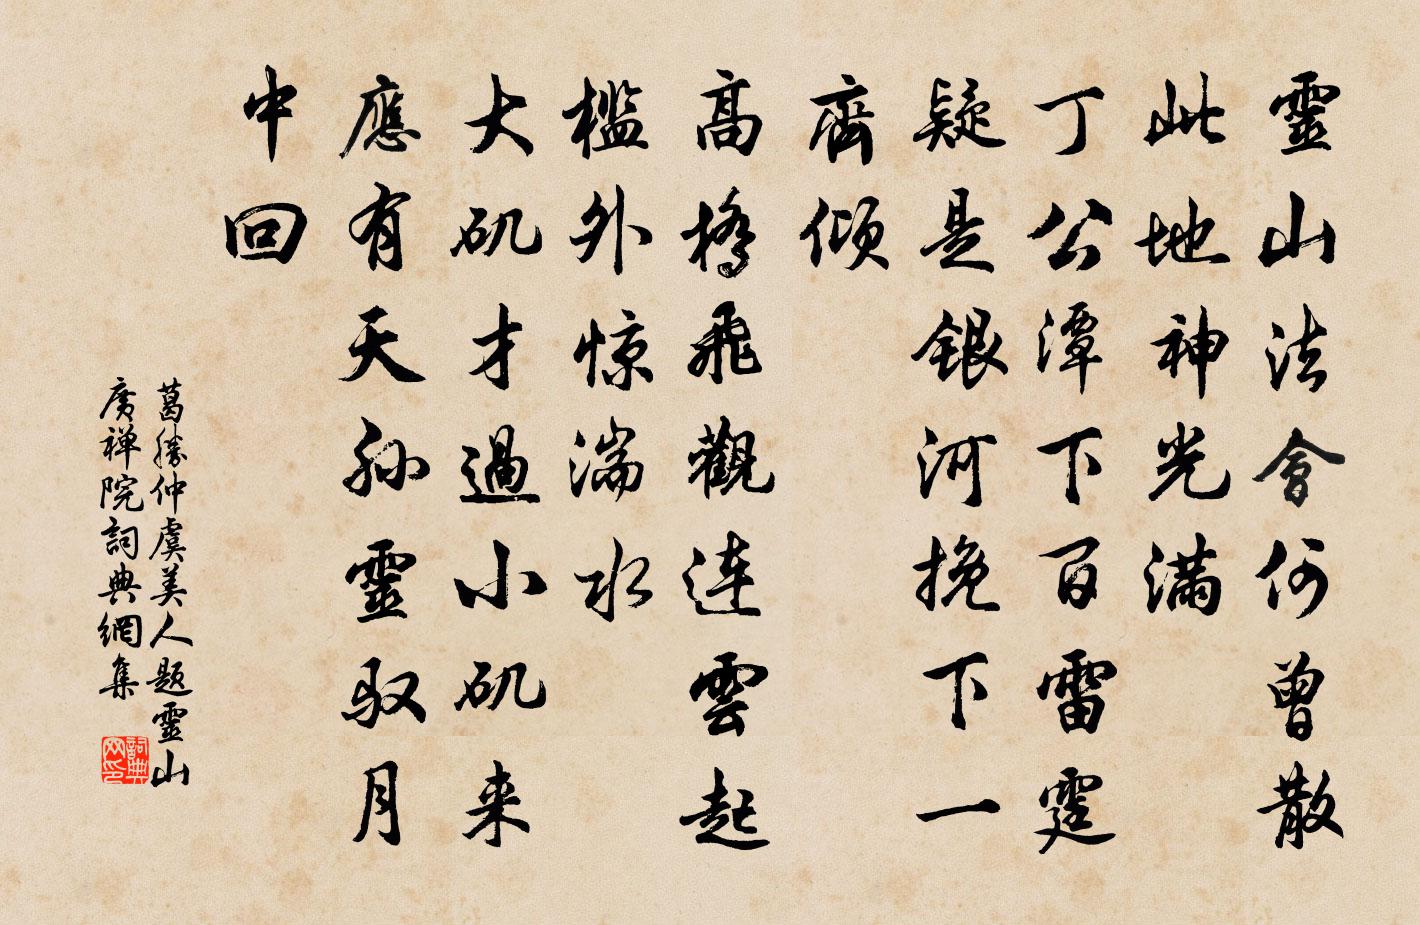 靈山法會何曾散
此地神光滿
丁公潭下百雷霆
疑是銀河挽下一
齊傾
高橋飛觀連雲起
檻外惊湍水
大矶才過小矶来
應有天孙靈驭月
中回
葛勝仲虞美人題靈山
廣禅院詞典網集
詞典网印